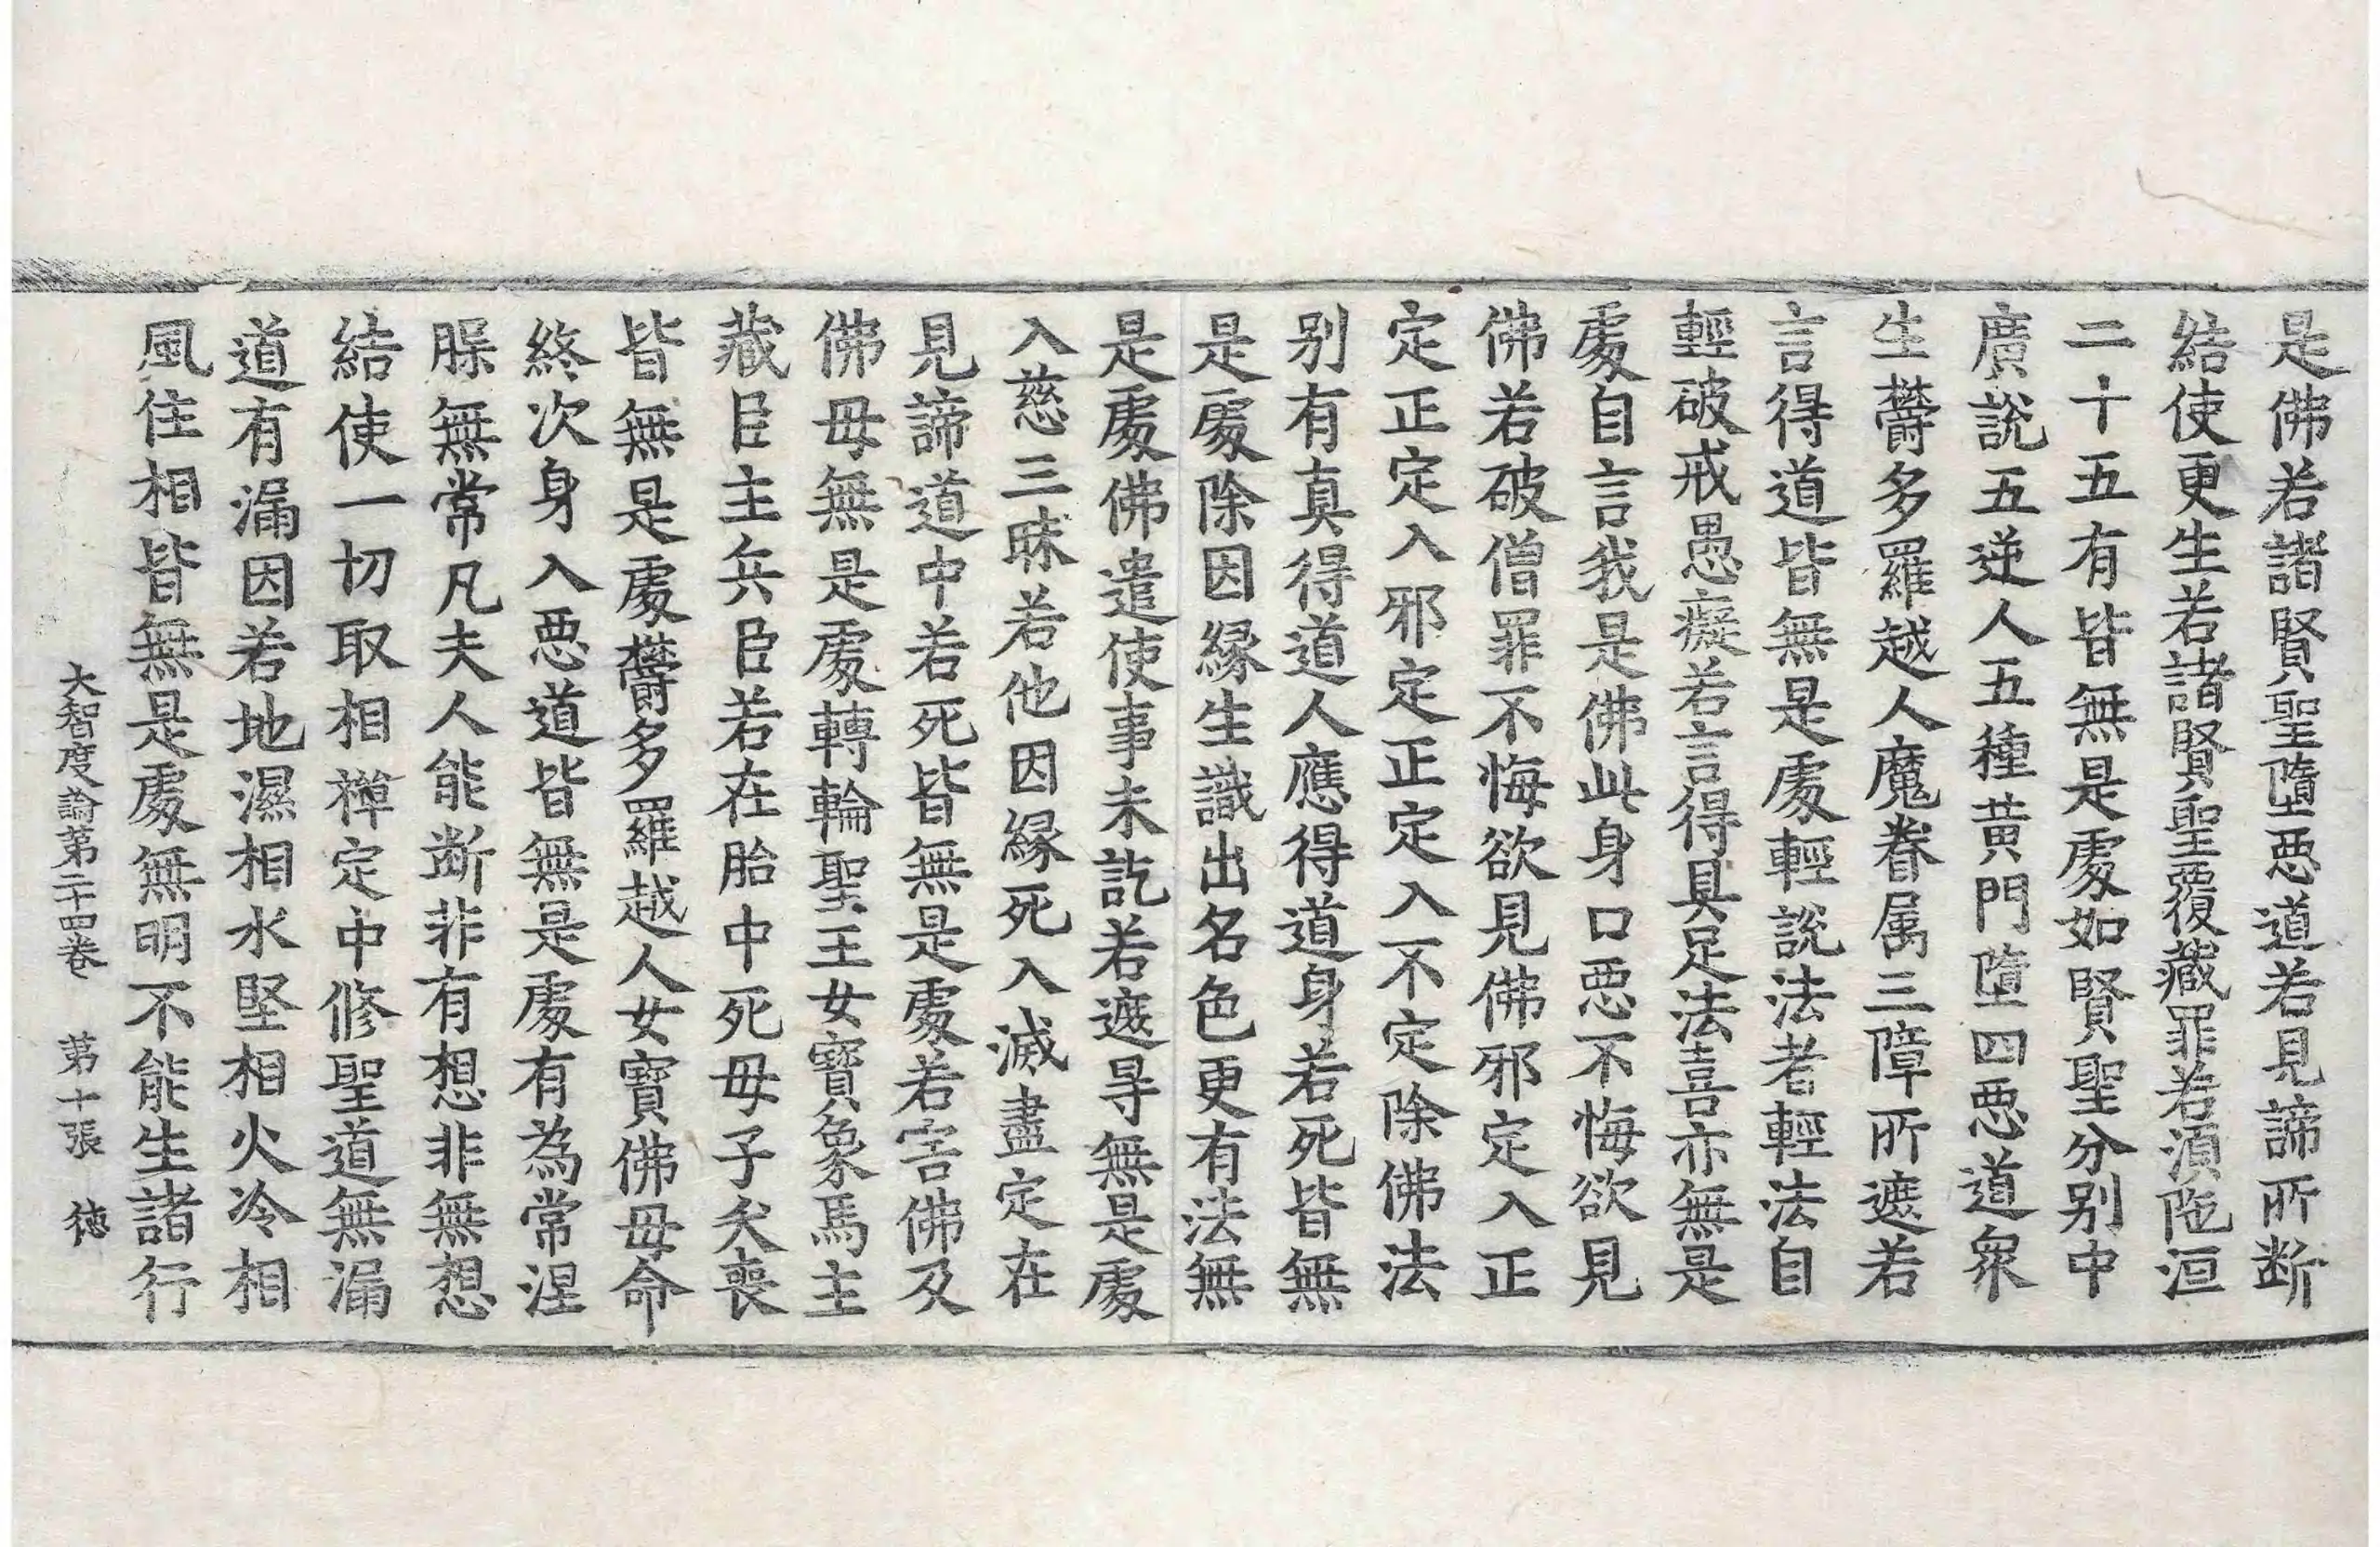 是佛若諸賢聖墮惡道若見諦所斷
結使更生若諸賢聖覆藏罪若湏陁洹
二十五有皆無是處如賢聖分別中
廣說五逆人五種黃門墮四惡道衆
生欝多羅越人魔眷属三障所遮若
言得道皆無是處輕說法者輕法自
輕破戒愚癡若言得具足法喜亦無是
處自言我是佛此身口惡不悔欲見
佛若破僧罪不悔欲見佛邪定入正
定正定入邪定正定入不定除佛法
別有真得道人應得道身若死皆無
是處除因緣生識出名色更有法無
是處佛遣使事未訖若遮㝵無是處
入慈三昧若他因緣死入滅盡定在
見諦道中若死皆無是處若害佛及
佛母無是處轉輪聖王女寶象馬主
藏臣主兵臣若在胎中死母子犬喪
皆無是處欝多羅越人女寶佛母命
終次身入惡道皆無是處有為常涅
睬無常凡夫人能斷非有想非無想
結使一切取相禪定中修聖道無漏
道有漏因若地濕相水堅相火冷相
風住相皆無是處無明不能生諸行
大智度論第二十四卷　第十張　徳